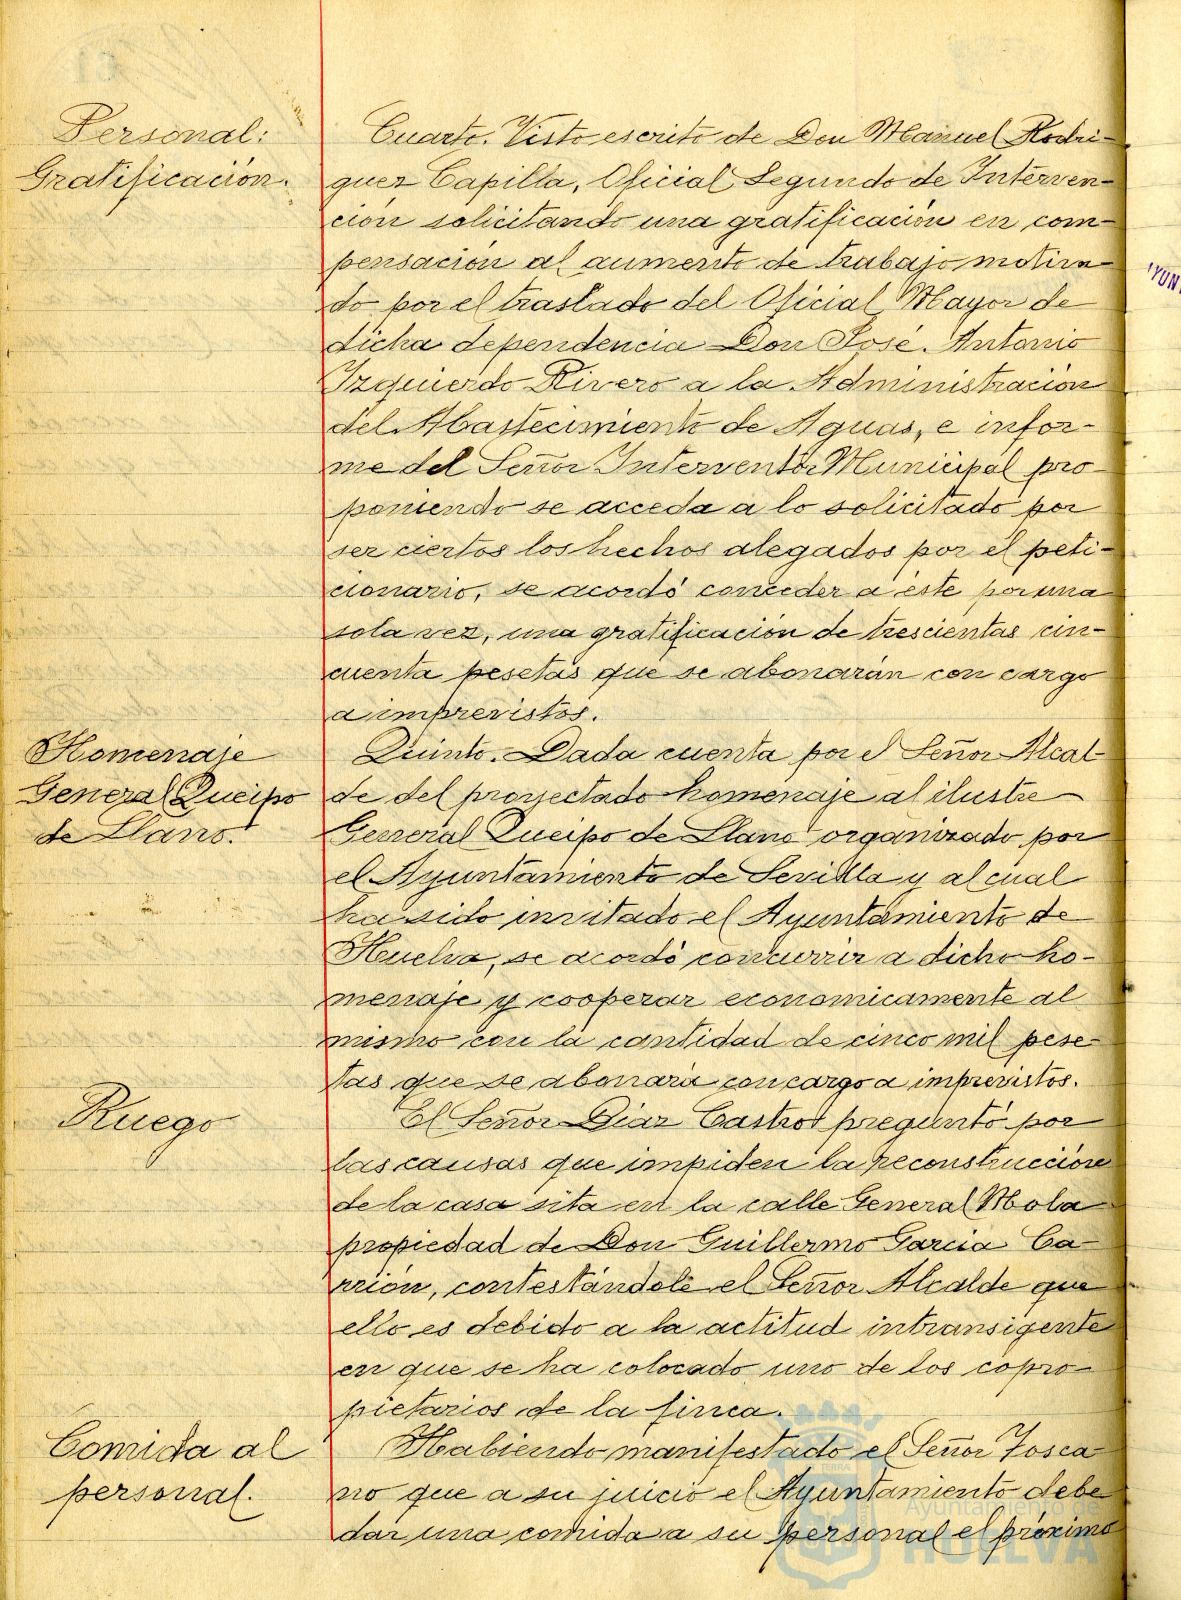 Personal:
Gratificación.
Cuarto. Visto escrito de Don Manuel Rodri-
guez Capilla, Oficial Segundo de Interven-
ción solicitando una gratificación en com-
pensación al aumento de trabajo motiva-
do por el traslado del Oficial Mayor de
dicha dependencia Don José Antonio
Izquierdo Rivero a la Administración
del Abastecimiento de Aguas, e infor-
me del Señor Interventor Municipal pro-
poniendo se acceda a lo solicitado por
ser ciertos los hechos alegados por el peti-
cionario, se acordó conceder a éste por una
sola vez, una gratificación de trescientas cin-
cuenta pesetas que se abonarán con cargo
a imprevistos.
Homenaje
General Queipo
de Llano.
Quinto. Dada cuenta por el Señor Alcal-
de del proyectado homenaje al ilustre
General Queipo de Llano organizado por
el Ayuntamiento de Sevilla y al cual
ha sido invitado el Ayuntamiento de
Huelva, se acordó concurrir a dicho ho-
menaje y cooperar economicamente al
mismo con la cantidad de cinco mil pese-
tas que se abonará con cargo a imprevistos.
Ruego
El Señor Díaz Castro preguntó por
las causas que impiden la reconstrucción
de la casa sita en la calle General Mola
propiedad de Don Guillermo García Ca-
rrión, contestándole el Señor Alcalde que
ello es debido a la actitud intransigente
en que se ha colocado uno de los copro-
pietarios de la finca.
Comida al
personal.
Habiendo manifestado el Señor Tosca-
no que a su juicio el Ayuntamiento debe
dar una comida a su personal el próximo
Ayuntamiento de
HUELVA